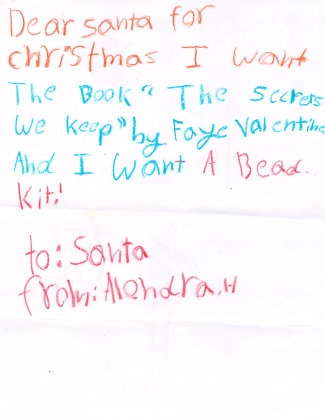 Dear santa for
christmas I want
The Book “ The secrets
We keep” by Faye Valentine
And I Want A Bead..
Kit!
to: Santa
from: Alondra.H